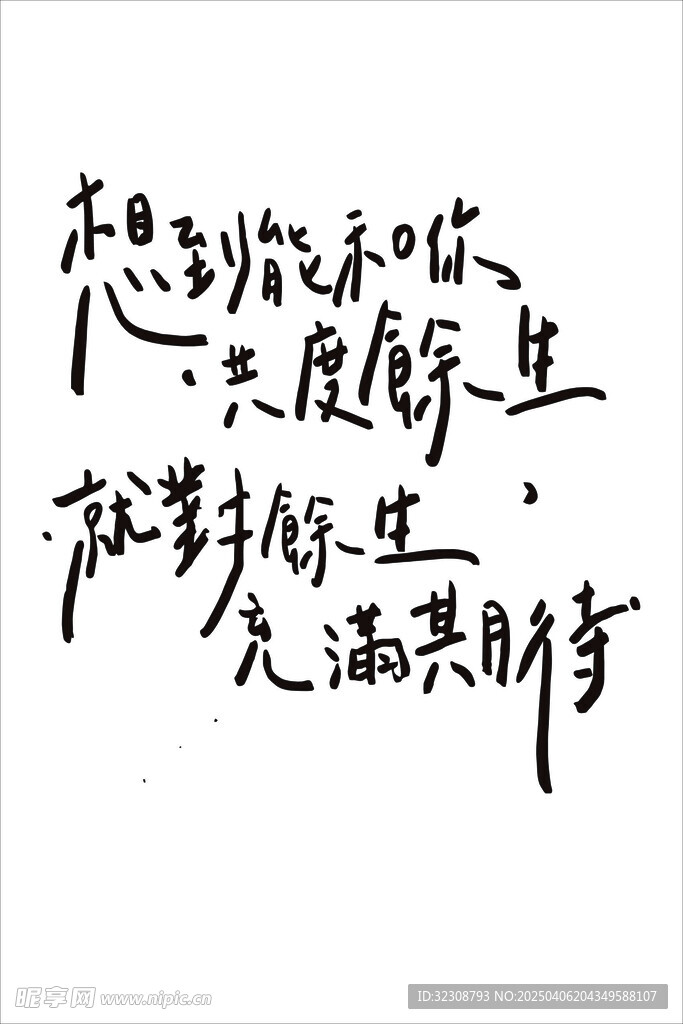 想到能和你
共度餘生，
就對餘生
充滿其期待
昵享网 www.nipic.cn
ID:32308793 NO:20250406204349588107